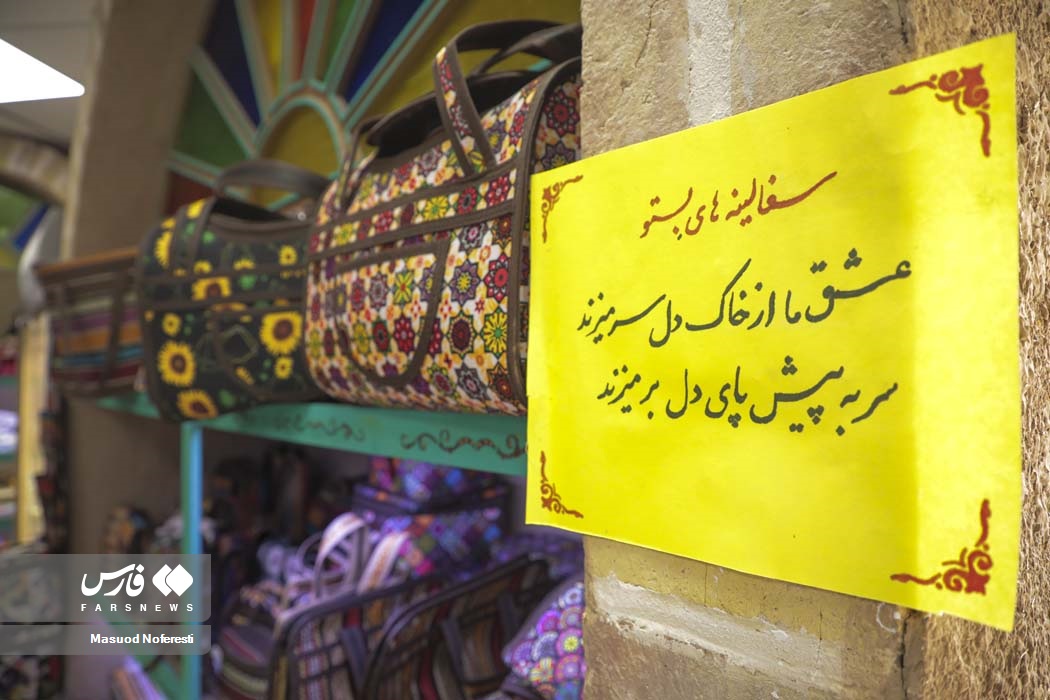 سفالینه های پستو
عشق ما از خاک دل سر میزند
سر به پیش پای دل بر میزند
فارس
FARSNEWS
Masuod Noferesti